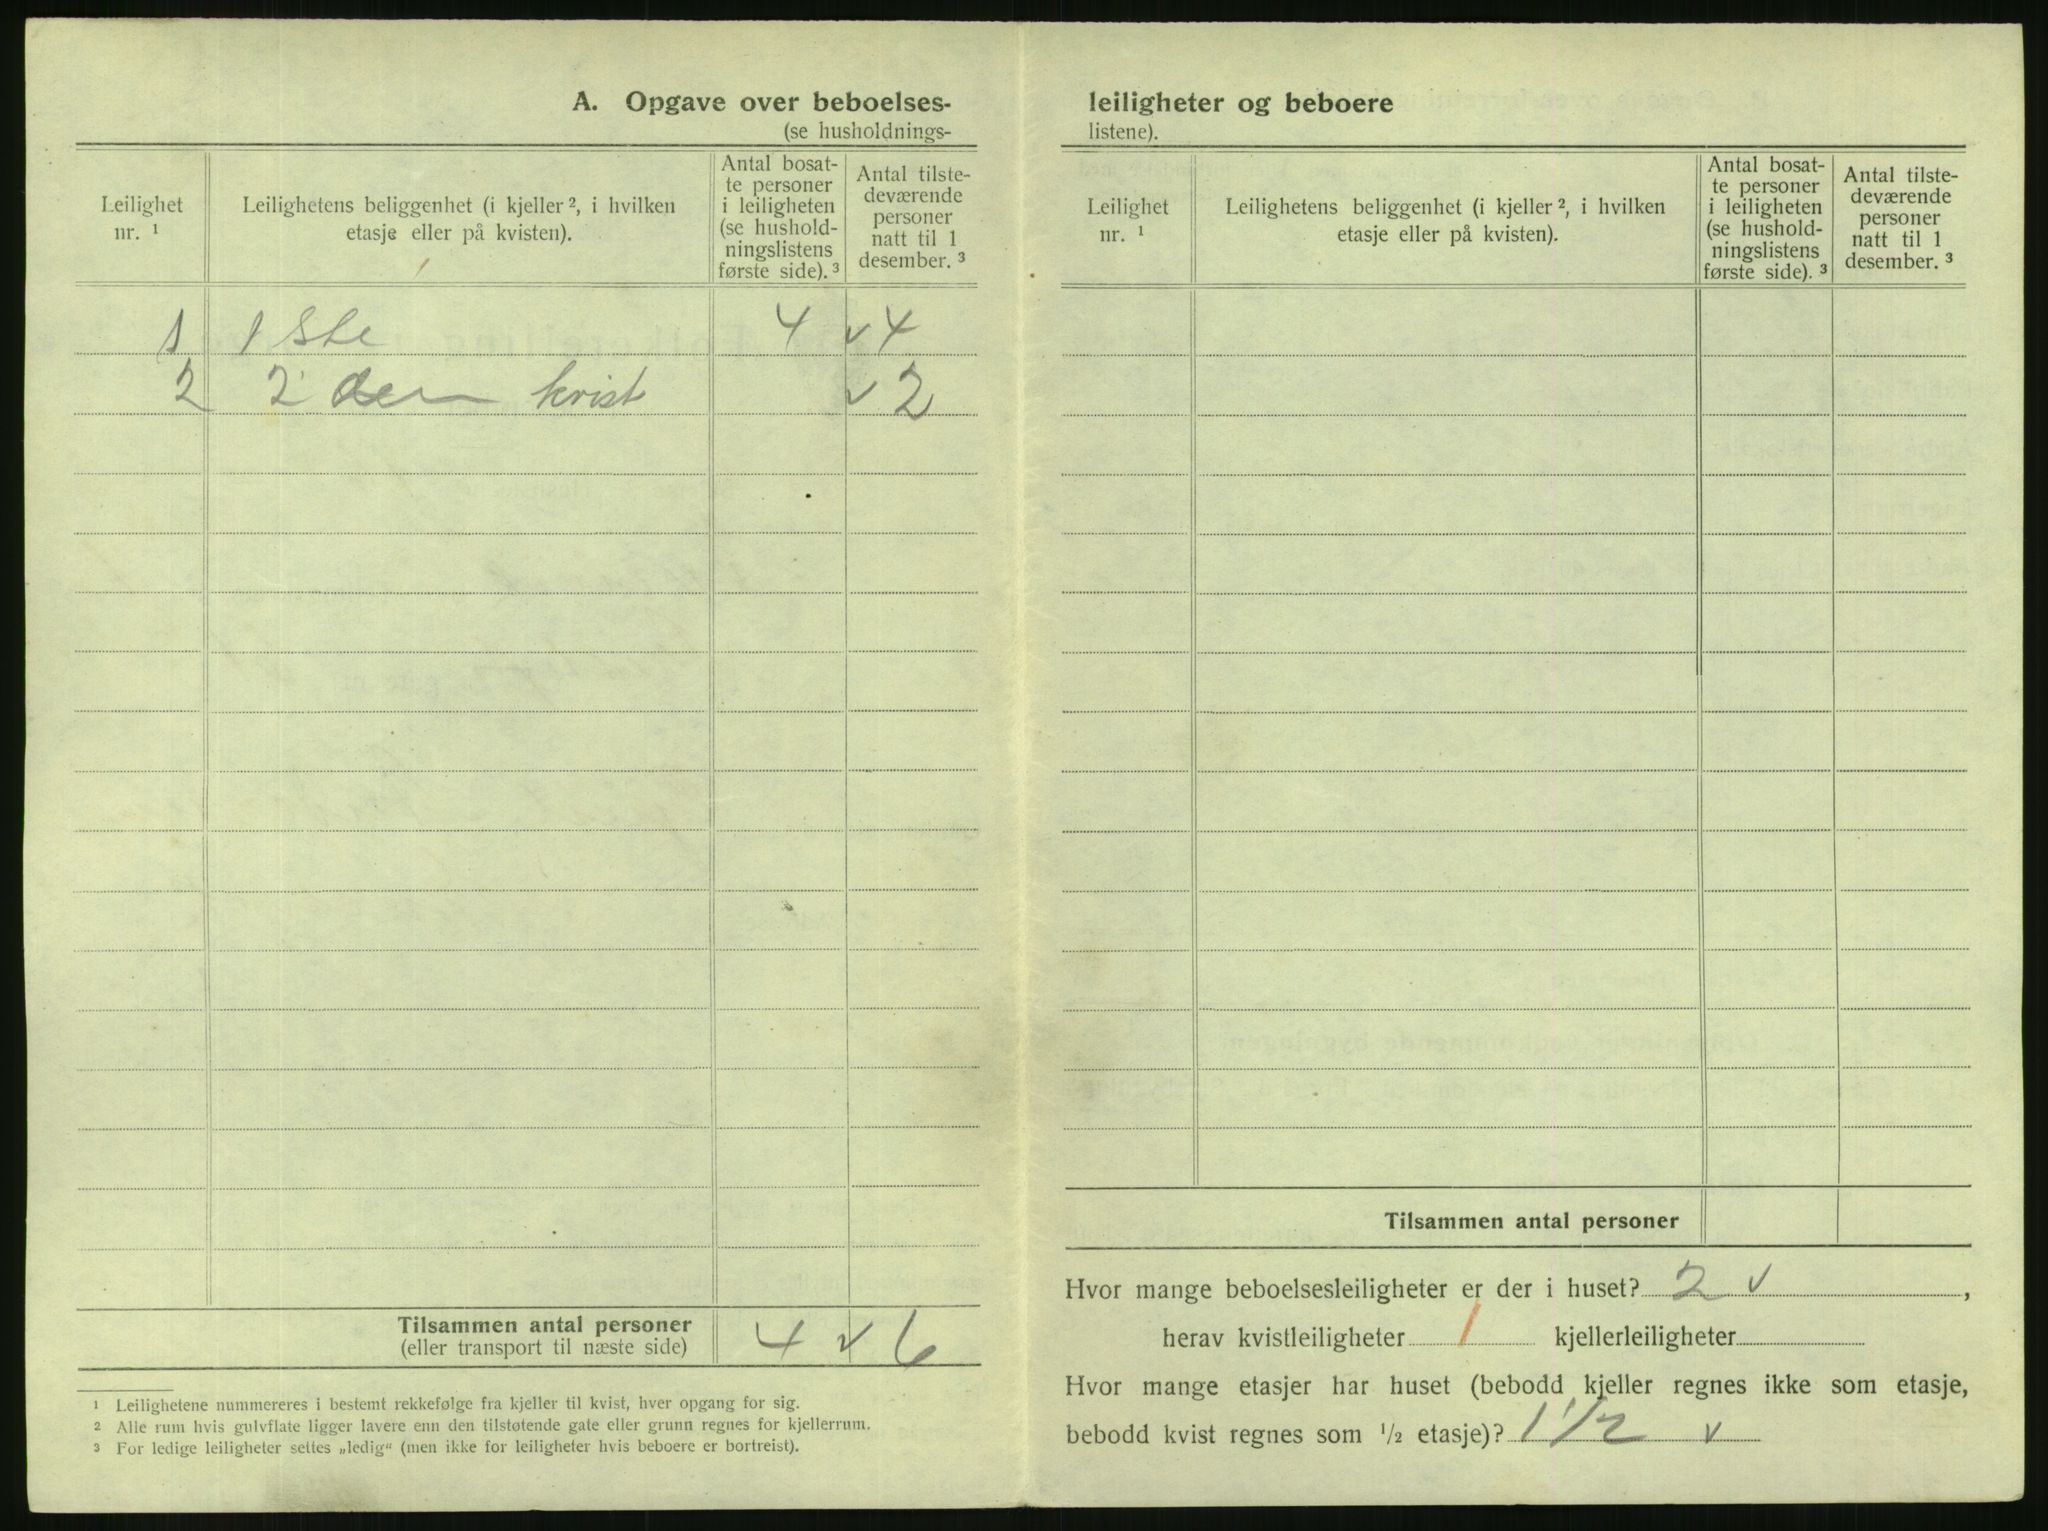 A. Opgave over beboelses-
(se husholdnings-
Leilighet nr. 1
Leilighetens beliggenhet (i kjeller ², i hvilken etasje eller på kvisten).
Antal bosat-
te personer
i leiligheten
(se hushold-
ningslistens
første side). ³
Antal tilste-
deværende
personer
natt til 1
desember. ³
1 1 ste 4 v 4
2 2 den kvist v 2
Tilsammen antal personer 4 v 6
(eller transport til næste side)
¹ Leilighetene nummereres i bestemt rekkefølge fra kjeller til kvist, hver opgang for sig.
² Alle rum hvis gulvflate ligger lavere enn den tilstøtende gate eller grunn regnes for kjellerrum.
³ For ledige leiligheter settes „ledig“ (men ikke for leiligheter hvis beboere er bortreist).
leiligheter og beboere
listene).
Leilighet nr. 1
Leilighetens beliggenhet (i kjeller ², i hvilken etasje eller på kvisten).
Antal bosat-
te personer
i leiligheten
(se hushold-
ningslistens
første side). ³
Antal tilste-
deværende
personer
natt til 1
desember. ³
Tilsammen antal personer
Hvor mange beboelsesleiligheter er der i huset? 2 v ,
herav kvistleiligheter 1 kjellerleiligheter
Hvor mange etasjer har huset (bebodd kjeller regnes ikke som etasje,
bebodd kvist regnes som ½ etasje)? 1 1/2 v